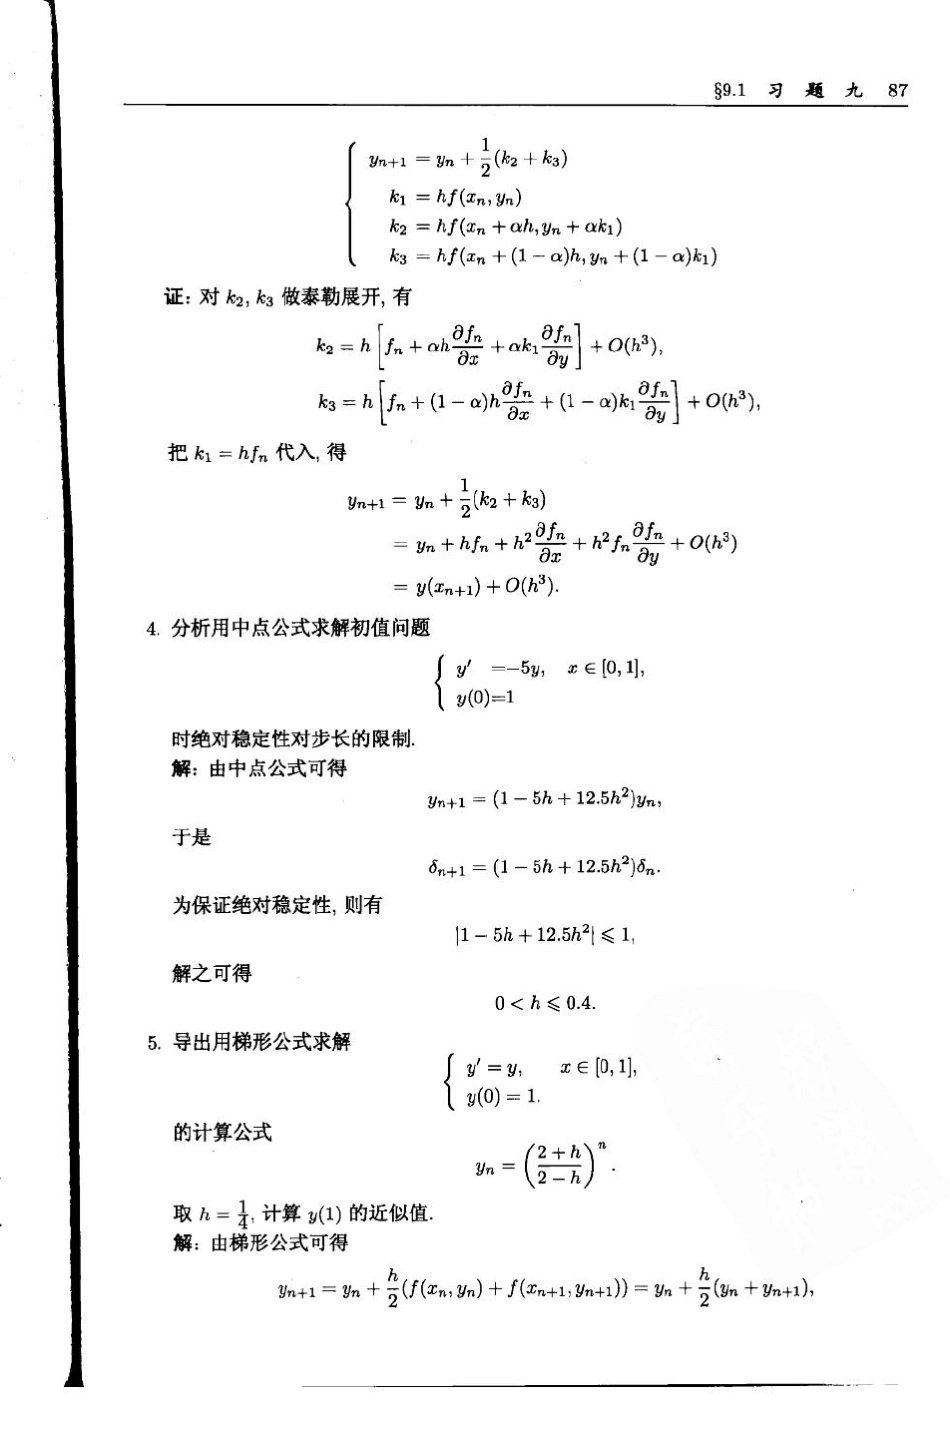 §9.1 习 题 九 87
y_{n+1} = y_n + \frac{1}{2}(k_2 + k_3)
k_1 = hf(x_n, y_n)
k_2 = hf(x_n + αh, y_n + αk_1)
k_3 = hf(x_n + (1 − α)h, y_n + (1 − α)k_1)
证: 对 k_2, k_3 做泰勒展开, 有
k_2 = h[f_n + αh\frac{∂f_n}{∂x} + αk_1\frac{∂f_n}{∂y}] + O(h^3),
k_3 = h[f_n + (1 − α)h\frac{∂f_n}{∂x} + (1 − α)k_1\frac{∂f_n}{∂y}] + O(h^3),
把 k_1 = hf_n 代入, 得
y_{n+1} = y_n + \frac{1}{2}(k_2 + k_3)
= y_n + hf_n + h^2\frac{∂f_n}{∂x} + h^2f_n\frac{∂f_n}{∂y} + O(h^3)
= y(x_{n+1}) + O(h^3).
4. 分析用中点公式求解初值问题
y′ =−5y, x ∈ [0, 1],
y(0)=1
时绝对稳定性对步长的限制.
解: 由中点公式可得
y_{n+1} = (1 − 5h + 12.5h^2)y_n,
于是
δ_{n+1} = (1 − 5h + 12.5h^2)δ_n.
为保证绝对稳定性, 则有
|1 − 5h + 12.5h^2| ⩽ 1,
解之可得
0 < h ⩽ 0.4.
5. 导出用梯形公式求解
y′ = y, x ∈ [0, 1],
y(0) = 1.
的计算公式
y_n = (\frac{2 + h}{2 − h})^n.
取 h = \frac{1}{4}, 计算 y(1) 的近似值.
解: 由梯形公式可得
y_{n+1} = y_n + \frac{h}{2}(f(x_n, y_n) + f(x_{n+1}, y_{n+1})) = y_n + \frac{h}{2}(y_n + y_{n+1}),